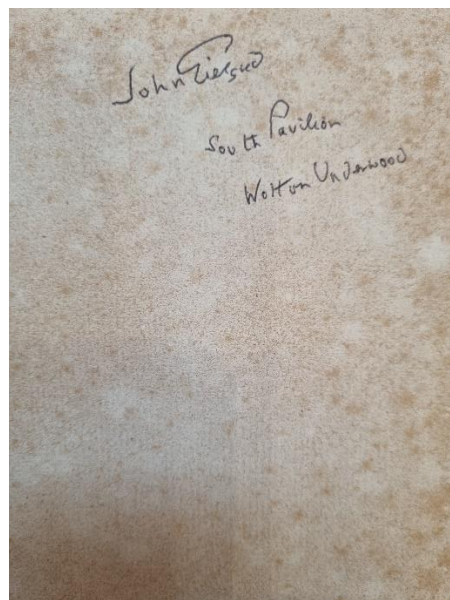 John Gielgud
South Pavilion
Wotton Underwood